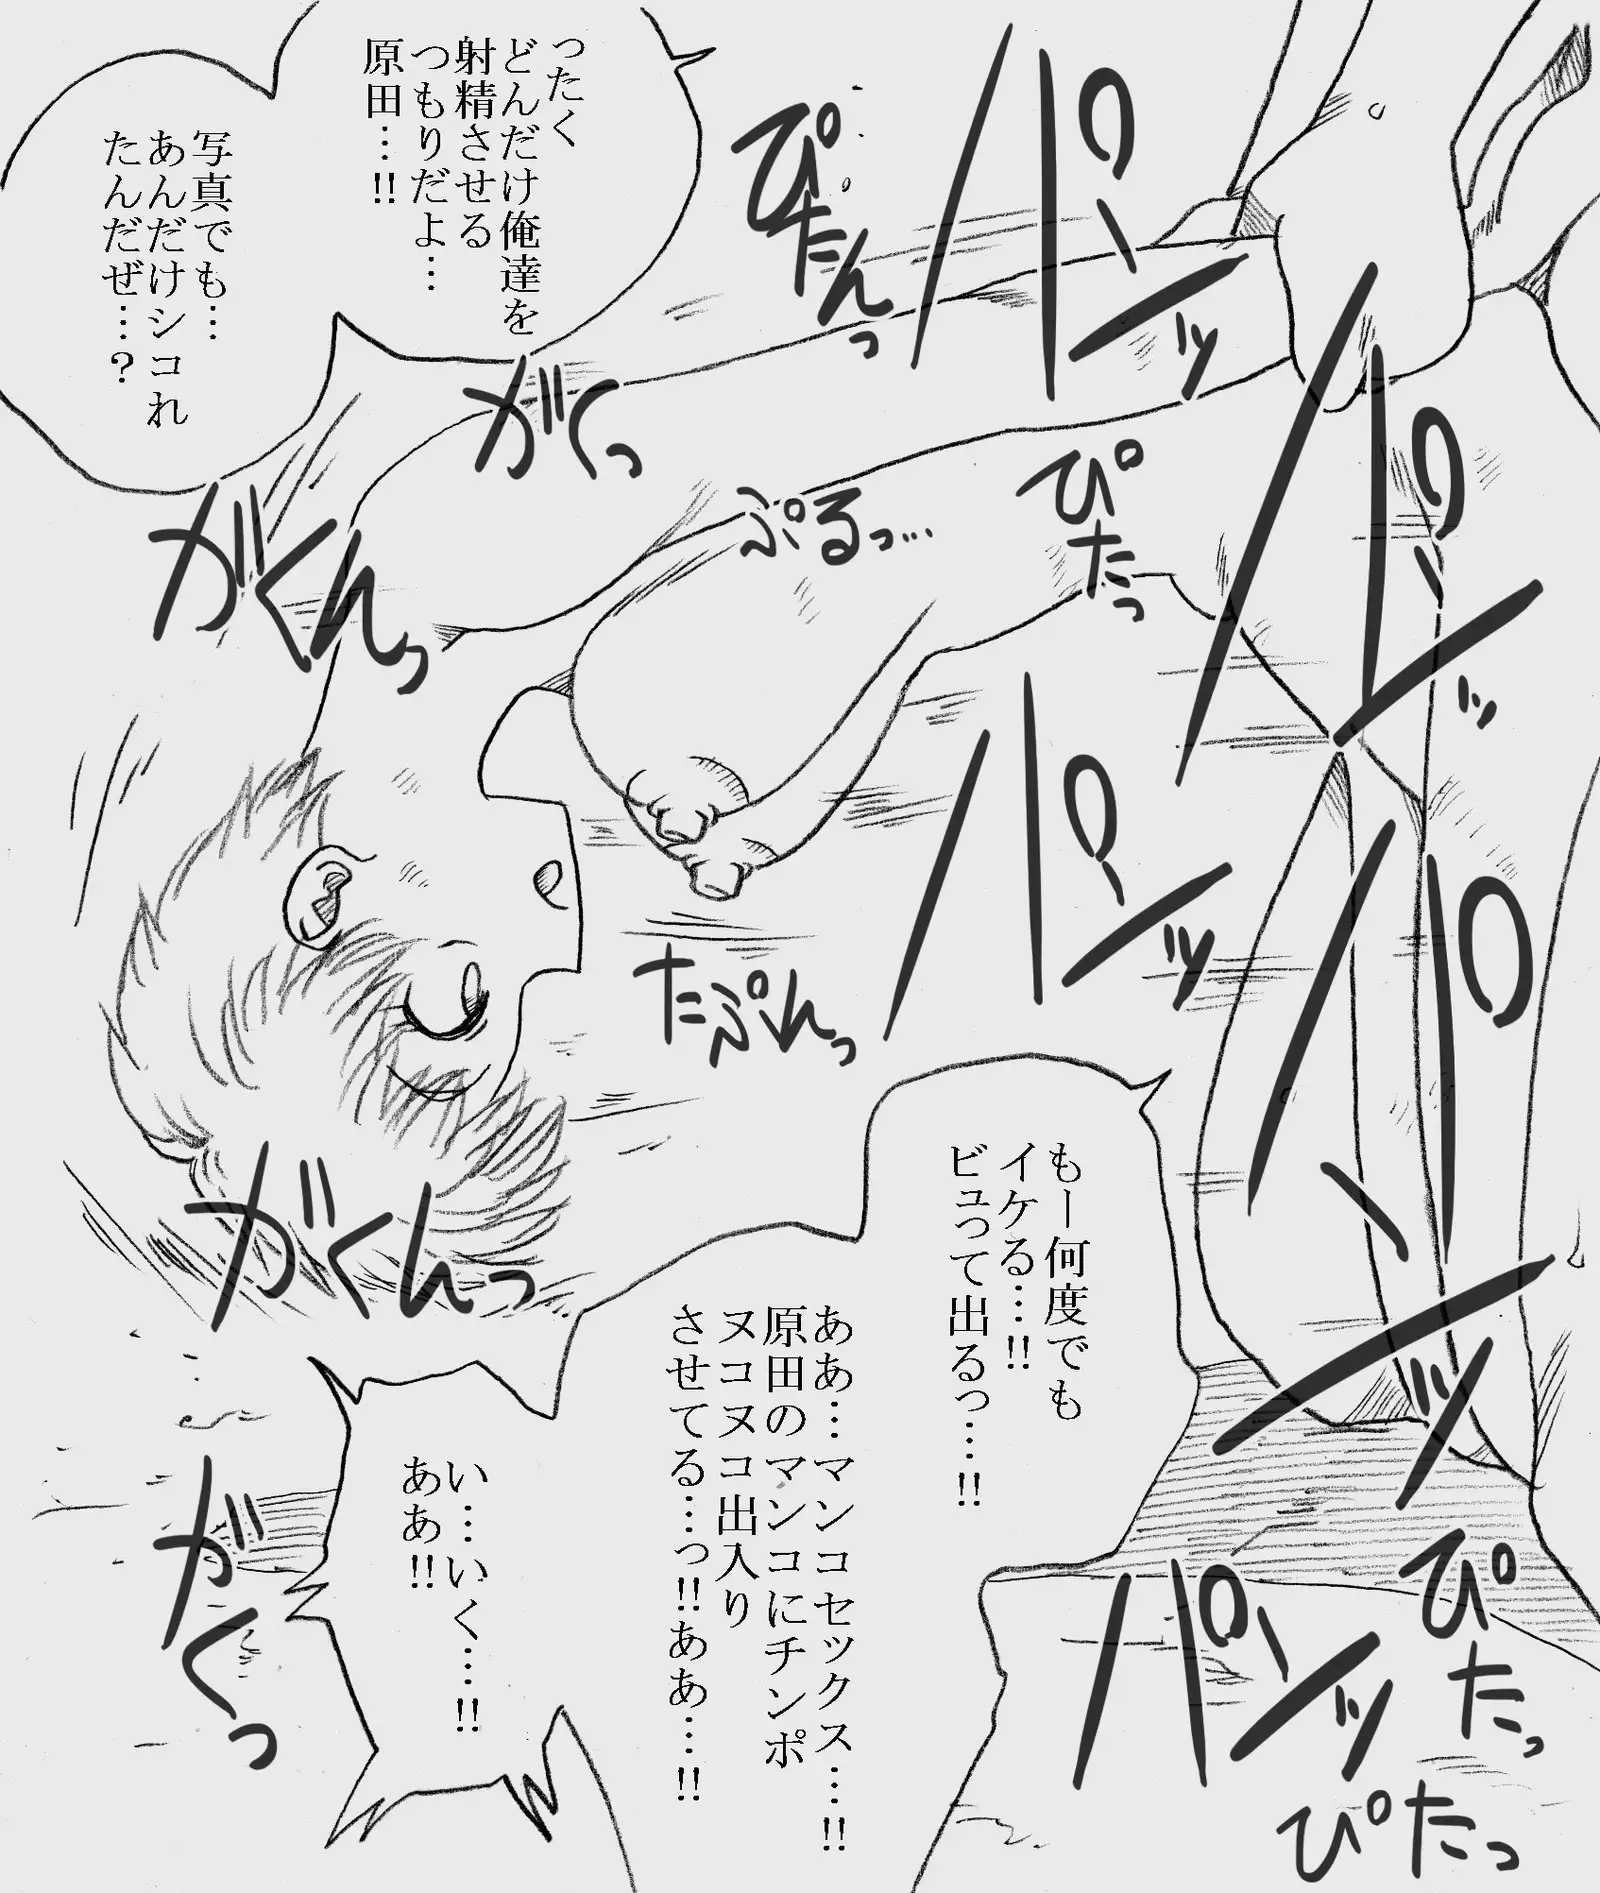 もー何度でも
イケる…!!
ビュって出るっ…!!
ああ…マンコセックス…!!
原田のマンコにチンポ
ヌコヌコ出入り
させてる…っ!!ああ…!!
い…いく…!!
ああ!!
ったく
どんだけ俺達を
射精させる
つもりだよ…
原田…!!
写真でも…
あんだけシコれ
たんだぜ…?
パンッ
ぴたんっ
パンッ
ぴたっ
がくっ
ぷるっ…
がくんっ
パンッ
パンッ
たぷれっ
がくんっ
ぴたっ
がくっ
パンッ
ぴたっ